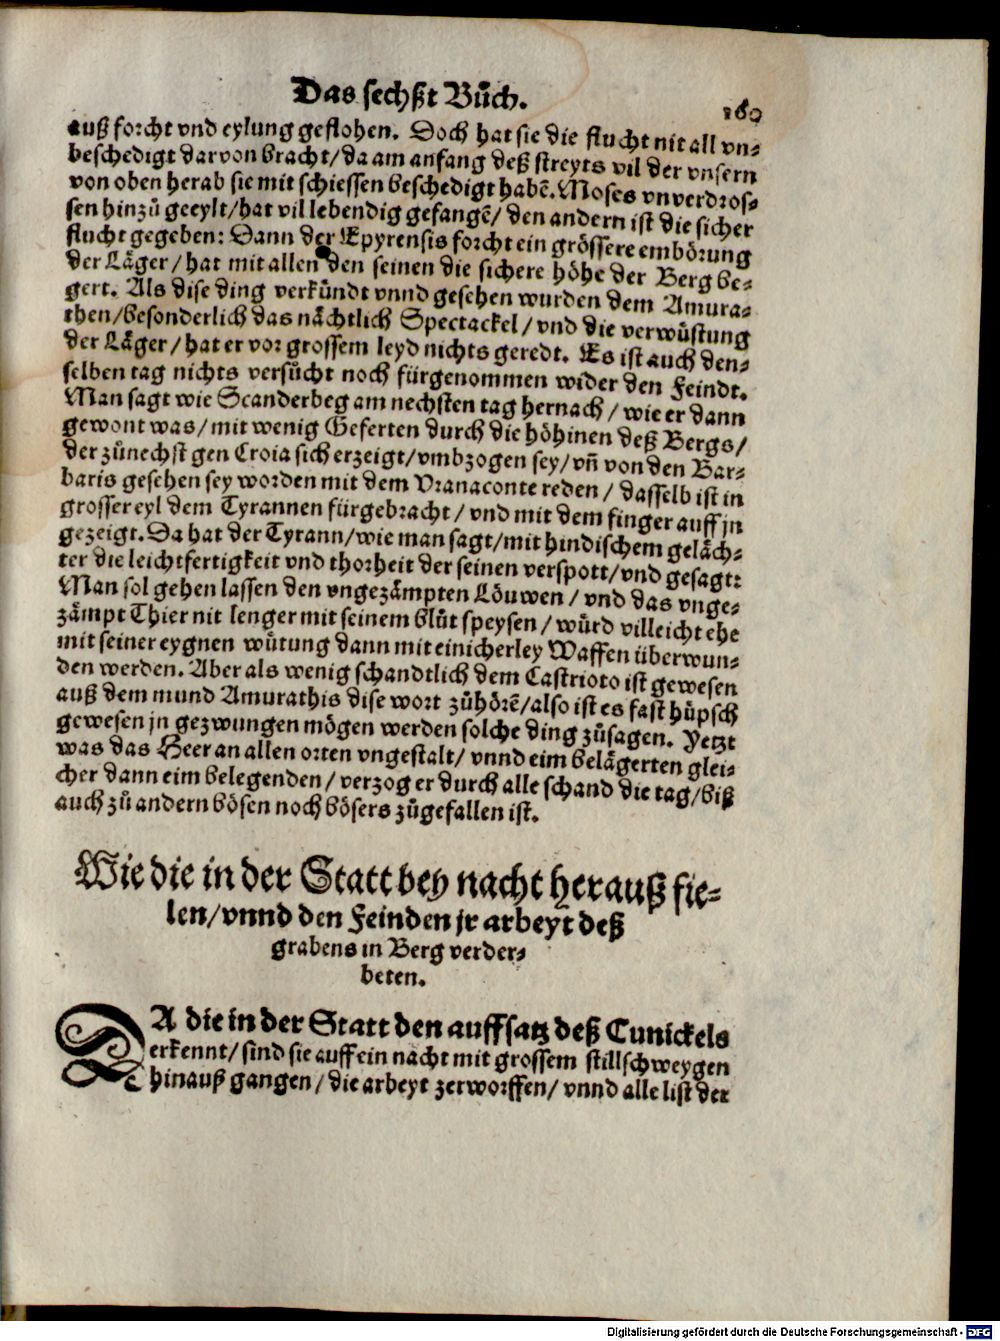 Das sechßt Bůch. 160
auß forcht vnd eylung geflohen. Doch hat sie die flucht nit all vn-
beschedigt darvon bracht/ da am anfang deß streyts vil der vnsern
von oben herab sie mit schiessen beschedigt habẽ. Moses vnverdros-
sen hinzů geeylt/ hat vil lebendig gefangẽ/ den andern ist die sicher
flucht gegeben: Dann der Epyrensis forcht ein grössere embörung
der Läger/ hat mit allen den seinen die sichere höhe der Berg be-
gert. Als dise ding verkündt vnnd gesehen wurden dem Amura-
then/ besonderlich das nächtlich Spectackel/ vnd die verwüstung
der Läger/ hat er vor grossem leyd nichts geredt. Es ist auch den-
selben tag nichts versůcht noch fürgenommen wider den Feindt.
Man sagt wie Scanderbeg am nechsten tag hernach/ wie er dann
gewont was/ mit wenig Geferten durch die höhinen deß Bergs/
der zůnechst gen Croia sich erzeigt/ vmbzogen sey/ vñ von den Bar-
baris gesehen sey worden mit dem Vranaconte reden/ dasselb ist in
grosser eyl dem Tyrannen fürgebracht/ vnd mit dem finger auff jn
gezeigt. Da hat der Tyrann/ wie man sagt/ mit hindischem geläch-
ter die leichtfertigkeit vnd thorheit der seinen verspott/ vnd gesagt:
Man sol gehen lassen den vngezämpten Löuwen/ vnd das vnge-
zämpt Thier nit lenger mit seinem blůt speysen/ würd villeicht ehe
mit seiner eygnen wütung dann mit einicherley Waffen überwun-
den werden. Aber als wenig schandtlich dem Castrioto ist gewesen
auß dem mund Amurathis dise wort zůhörẽ/ also ist es fast hüpsch
gewesen jn gezwungen mögen werden solche ding zůsagen. Yetzt
was das Heer an allen orten vngestalt/ vnnd eim belägerten glei-
cher dann eim belegenden/ verzog er durch alle schand die tag/ biß
auch zů andern bösen noch bösers zůgefallen ist.
Wie die in der Statt bey nacht herauß fie-
len/ vnnd den Feinden jr arbeyt deß
grabens in Berg verder-
beten.
DA die in der Statt den auffsatz deß Cunickels
erkennt/ sind sie auff ein nacht mit grossem stillschweygen
hinauß gangen/ die arbeyt zerworffen/ vnnd alle list der
Digitalisierung gefördert durch die Deutsche Forschungsgemeinschaft - DFG